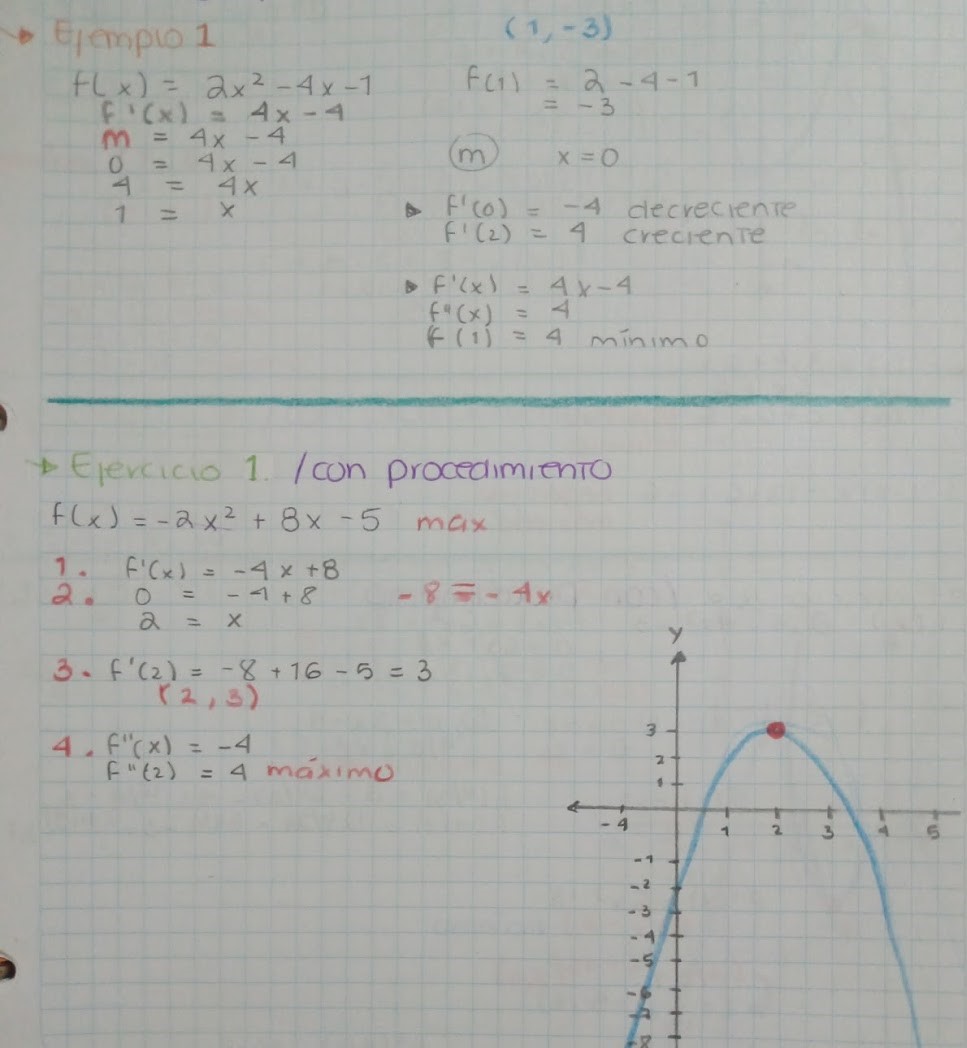 Ejemplo 1
(1, -3)
f(x) = 2x² - 4x - 1
f'(x) = 4x - 4
m = 4x - 4
0 = 4x - 4
4 = 4x
1 = x
f(1) = 2 - 4 - 1
= -3
m x = 0
f'(0) = -4 decreciente
f'(2) = 4 creciente
f'(x) = 4x - 4
f"(x) = 4
f(1) = 4 mínimo
Ejercicio 1. /con procedimiento
f(x) = -2x² + 8x - 5 max
1. f'(x) = -4x + 8
2. 0 = -4 + 8 -8 = -4x
2 = x
3. f'(2) = -8 + 16 - 5 = 3
(2, 3)
4. f"(x) = -4
f"(2) = 4 máximo
y
3
2
1
-4 1 2 3 4 5
-1
-2
-3
-4
-5
-6
-7
-8